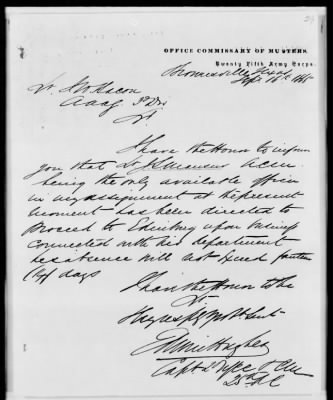 OFFICE COMMISSARY OF MUSTERS,
Twenty Fifth Army Corps,
Brownsville Texas
Sept 16th 1865
Lt.
A.A.A.G.
I have the Honor to inform
you that Lt
being the only available officer
in my assignment at the present
moment has been directed to
proceed to Edinburg upon
connected with his department
his absence will not exceed fourteen
days
I have the Honor to be
Very respy Your Obt Servt
Hughes
Capt
25th A C